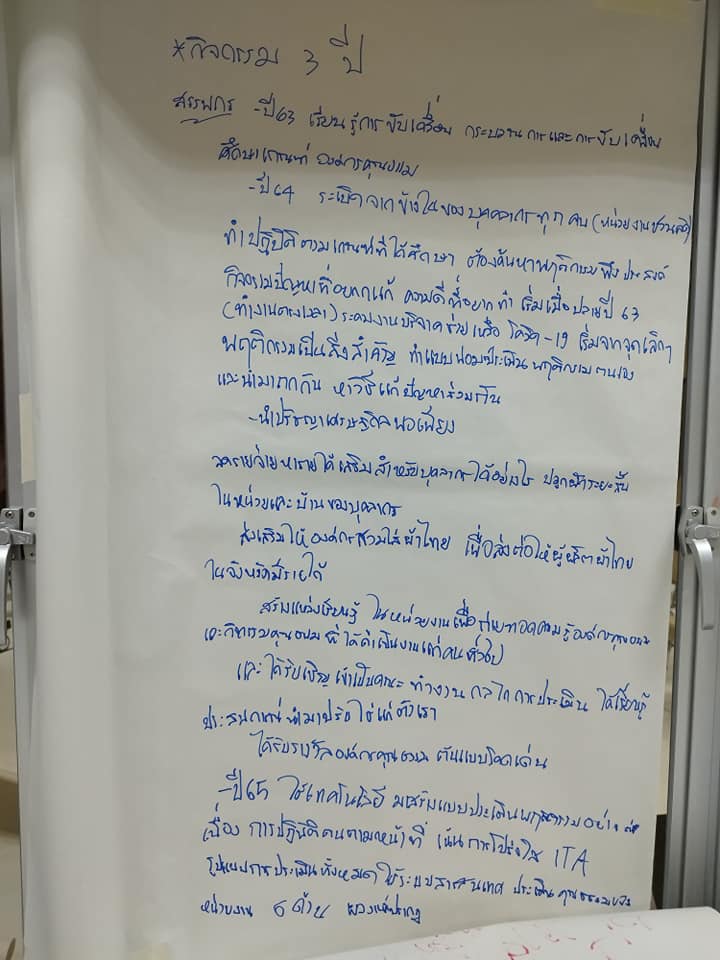 *กิจกรรม 3 ปี
สรรพกร -ปี63 เรียนรู้การขับเคลื่อน กระบวนการและการขับเคลื่อน
ศึกษาเกณฑ์ องค์กรคุณธรรม
-ปี64 ระเบิดจากข้างในของบุคคลากรทุกคน (หน่วยงาน
ทำปฏิบัติตามเกณฑ์ที่ได้ศึกษา ต้องค้นหาพฤติกรรมพึงประสงค์
กิจกรรมปัญหาที่อยากแก้ ความดีที่อยากทำ เริ่มเมื่อปลายปี 63
(ทำงานตรงเวลา) ระดมงานบริจาคช่วยเหลือ โควิด-19 เริ่มจากจุดเล็กๆ
พฤติกรรมเป็นสิ่งสำคัญ ทำแบบฟอร์มประเมินพฤติกรรมตนเอง
และนำมาถกกัน หาวิธีแก้ปัญหาร่วมกัน
-นำปรัชญาเศรษฐกิจพอเพียง
ลดรายจ่ายหารายได้เสริมสำหรับบุคลากรได้อย่างไร ปลูกผักระยะสั้น
ในหน่วยและบ้านของบุคลากร
ส่งเสริมให้องค์กรสวมใส่ผ้าไทย เพื่อส่งต่อให้ผู้ผลิตผ้าไทย
ในจังหวัดมีรายได้
สร้างแหล่งเรียนรู้ ในหน่วยงานเพื่อถ่ายทอดความรู้องค์กรคุณธรรม
และกิจกรรมคุณธรรมที่ได้ดำเนินงานแก่คนทั่วไป
และได้รับเชิญเข้าเป็นคณะทำงานกลไกการประเมิน ได้เรียนรู้
ประสบการณ์นำมาปรับใช้แก่ตัวเรา
ได้รับรางวัลองค์กรคุณธรรม ต้นแบบโดดเด่น
-ปี65 ใช้เทคโนโลยี มาสร้างแบบประเมินพฤติกรรมอย่างต่อ
เนื่อง การปฏิบัติตนตามหน้าที่ เน้นการโปร่งใส ITA
รูปแบบการประเมินทั้งหมดใช้ระบบสารสนเทศ ประเมินคุณธรรมของ
หน่วยงาน 6 ด้าน